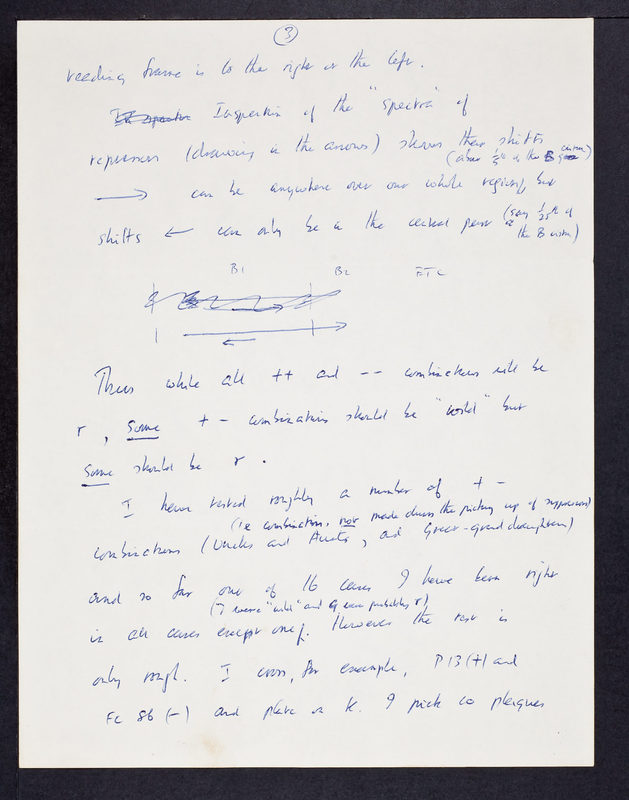 ③
reading frame is to the right or the left.
Inspection of the "spectra" of
repressors (drawing in the arrows) shows that shifts
(about ⅓ in the B cistron)
⟶ can be anywhere over our whole region, but
shifts ← can only be in the central part (say 1/25th of
the B cistron)
B1 B2 ETC
Thus while all ++ and -- combinations will be
r, some + - combinations should be "wild" but
some should be r.
I have tested roughly a number of + -
(i.e. combinations not made during the picking up of suppressors)
combinations (Uncles and Aunts, and Great-grand daughters)
and so far out of 16 cases I have been right
(7 were "wild" and 9 were probably r)
in all cases except one. However the test is
only rough. I cross, for example, P13 (+) and
FC 86 (-) and plate on K. I pick 10 plaques